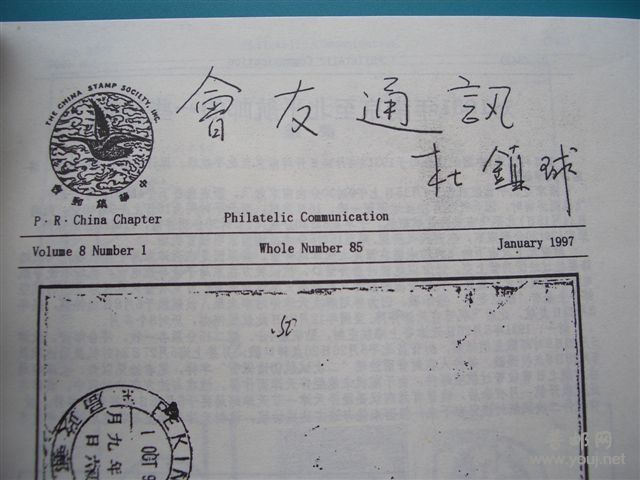 THE CHINA STAMP SOCIETY, INC.
會友通訊
杜鎮球
P·R·China Chapter
Philatelic Communication
Volume 8 Number 1
Whole Number 85
January 1997
PEKIN
1 OCT 9
月九年
www.youj.net